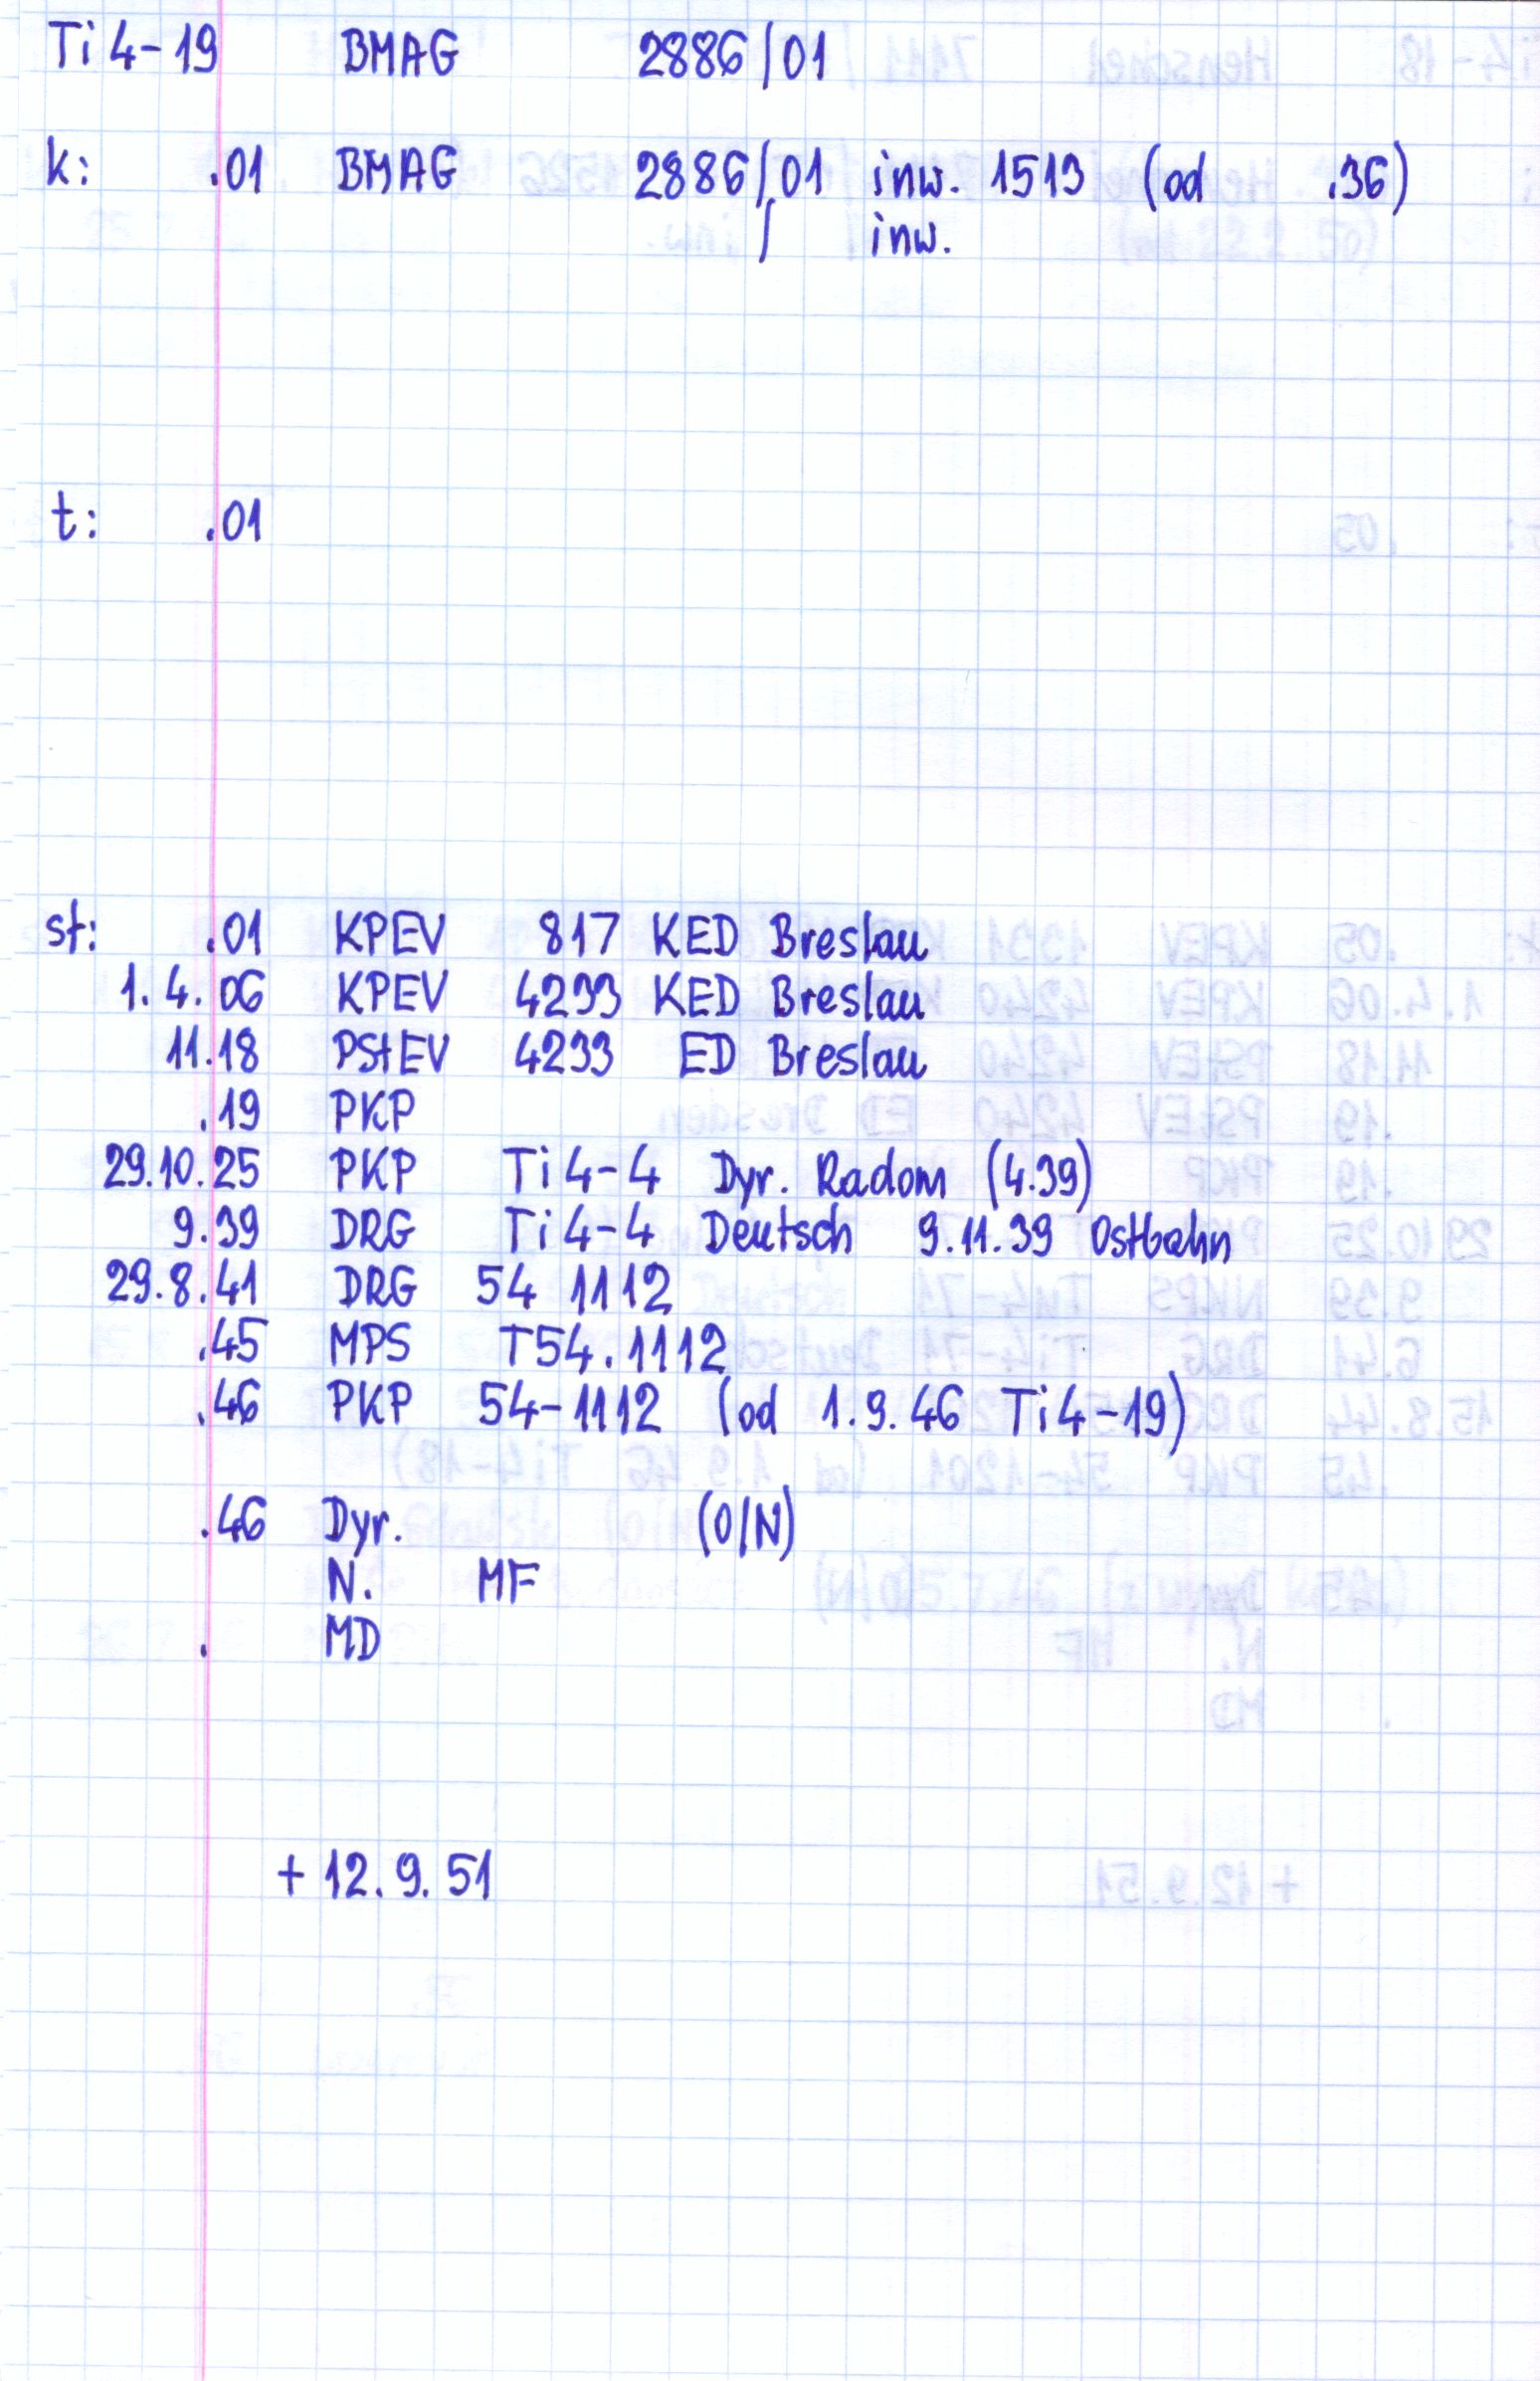 Ti 4-19 BMAG 2886/01
k: .01 BMAG 2886/01 inw. 1513 (od .36)
/ inw.
t: .01
st: .01 KPEV 817 KED Breslau
1.4.06 KPEV 4233 KED Breslau
11.18 PStEV 4233 ED Breslau
.19 PKP
29.10.25 PKP Ti 4-4 Dyr. Radom (4.39)
9.39 DRG Ti 4-4 Deutsch 9.11.39 Ostbahn
29.8.41 DRG 54 1112
.45 MPS T54.1112
.46 PKP 54-1112 (od 1.9.46 Ti4-19)
.46 Dyr. (O/N)
N. MF
. MD
+ 12.9.51